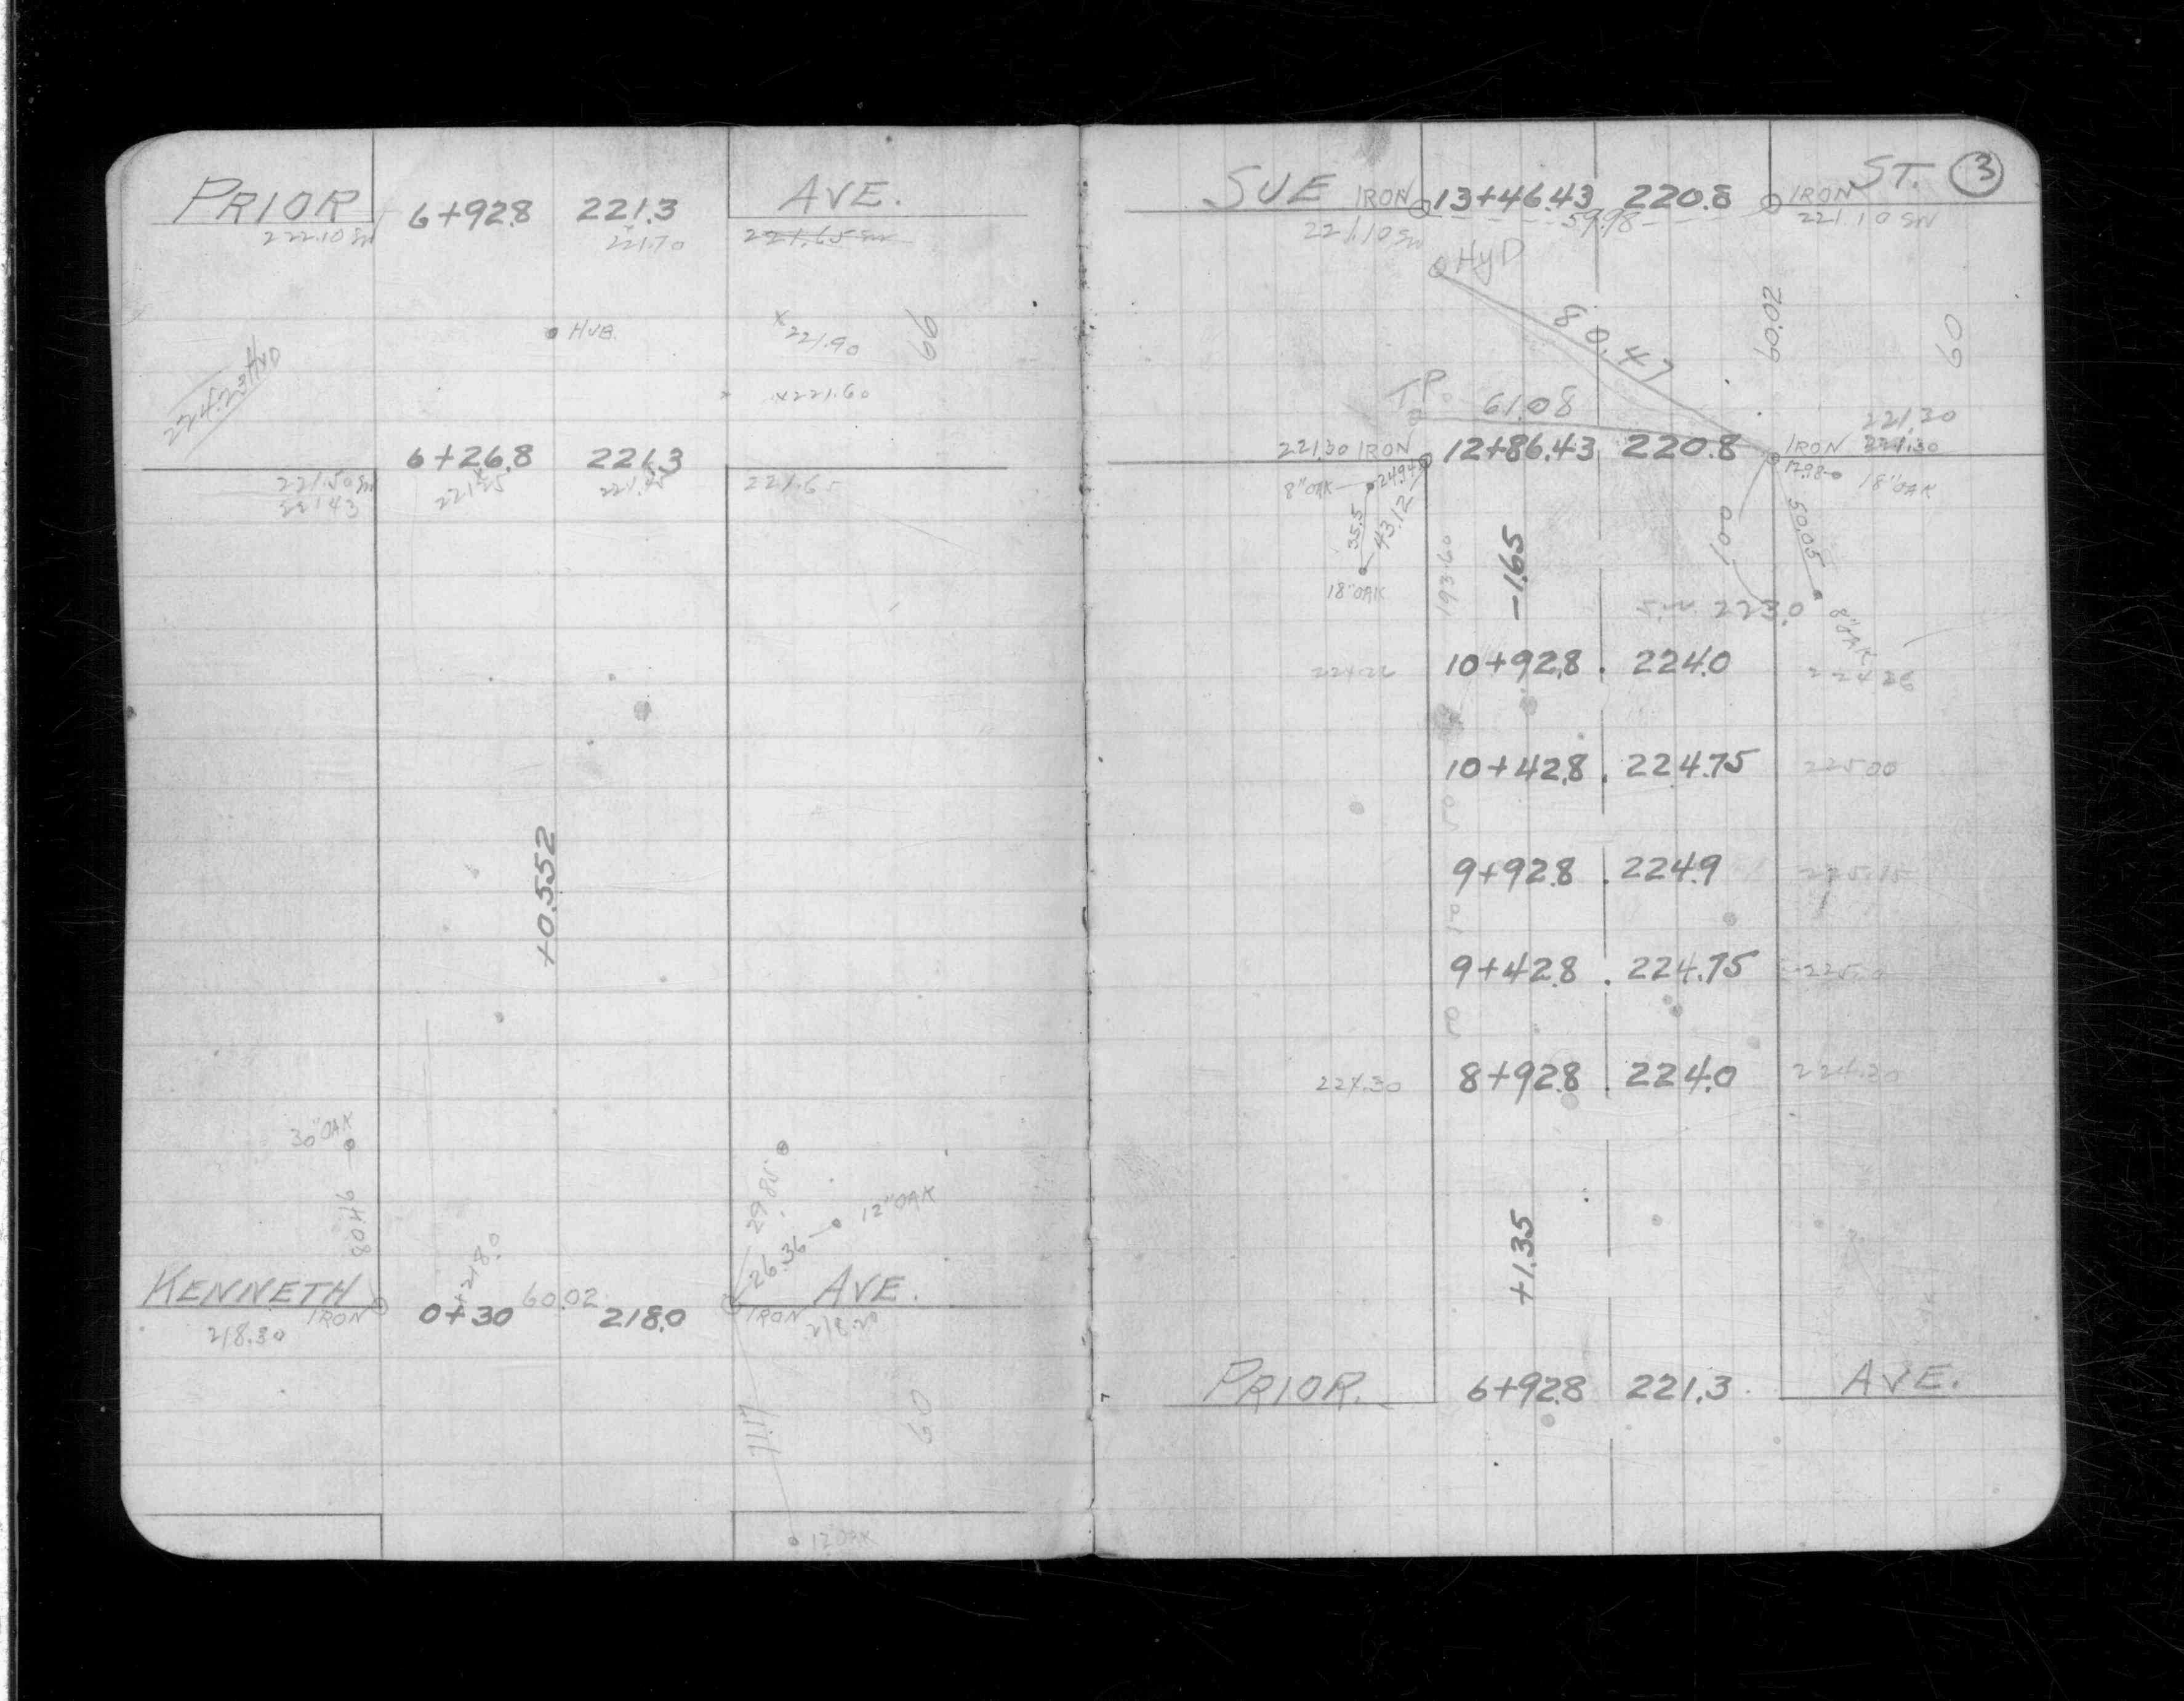 PRIOR 6+92.8 221.3 AVE.
222.10 SW 221.70 221.65 SW
HUB.
x 221.90
66
224.23 HYD
x 221.60
6+26.8 221.3
221.50 SW 221.65
221.43
+0.552
30" OAK
80.46
29.85
26.36
12" OAK
218.0
KENNETH IRON 0+30 60.02 218.0 IRON AVE.
218.30 218.20
71.17
60
12" OAK
SUE IRON 13+46.43 220.8 IRON ST. 3
221.10 SW 59.98 221.10 SW
HYD
80.47
60.02
60
TP
61.08
221.30
221.30 IRON 12+86.43 220.8 IRON 221.30
8" OAK 24.94 17.98 18" OAK
35.5
43.12
18" OAK
193.60
-1.65
50.05
8" OAK
S.W. 223.0
10+92.8 224.0
10+42.8 224.75 225.00
9+92.8 224.9 225.15
9+42.8 224.75 225.0
224.30 8+92.8 224.0 224.30
+1.35
PRIOR. 6+92.8 221.3 AVE.